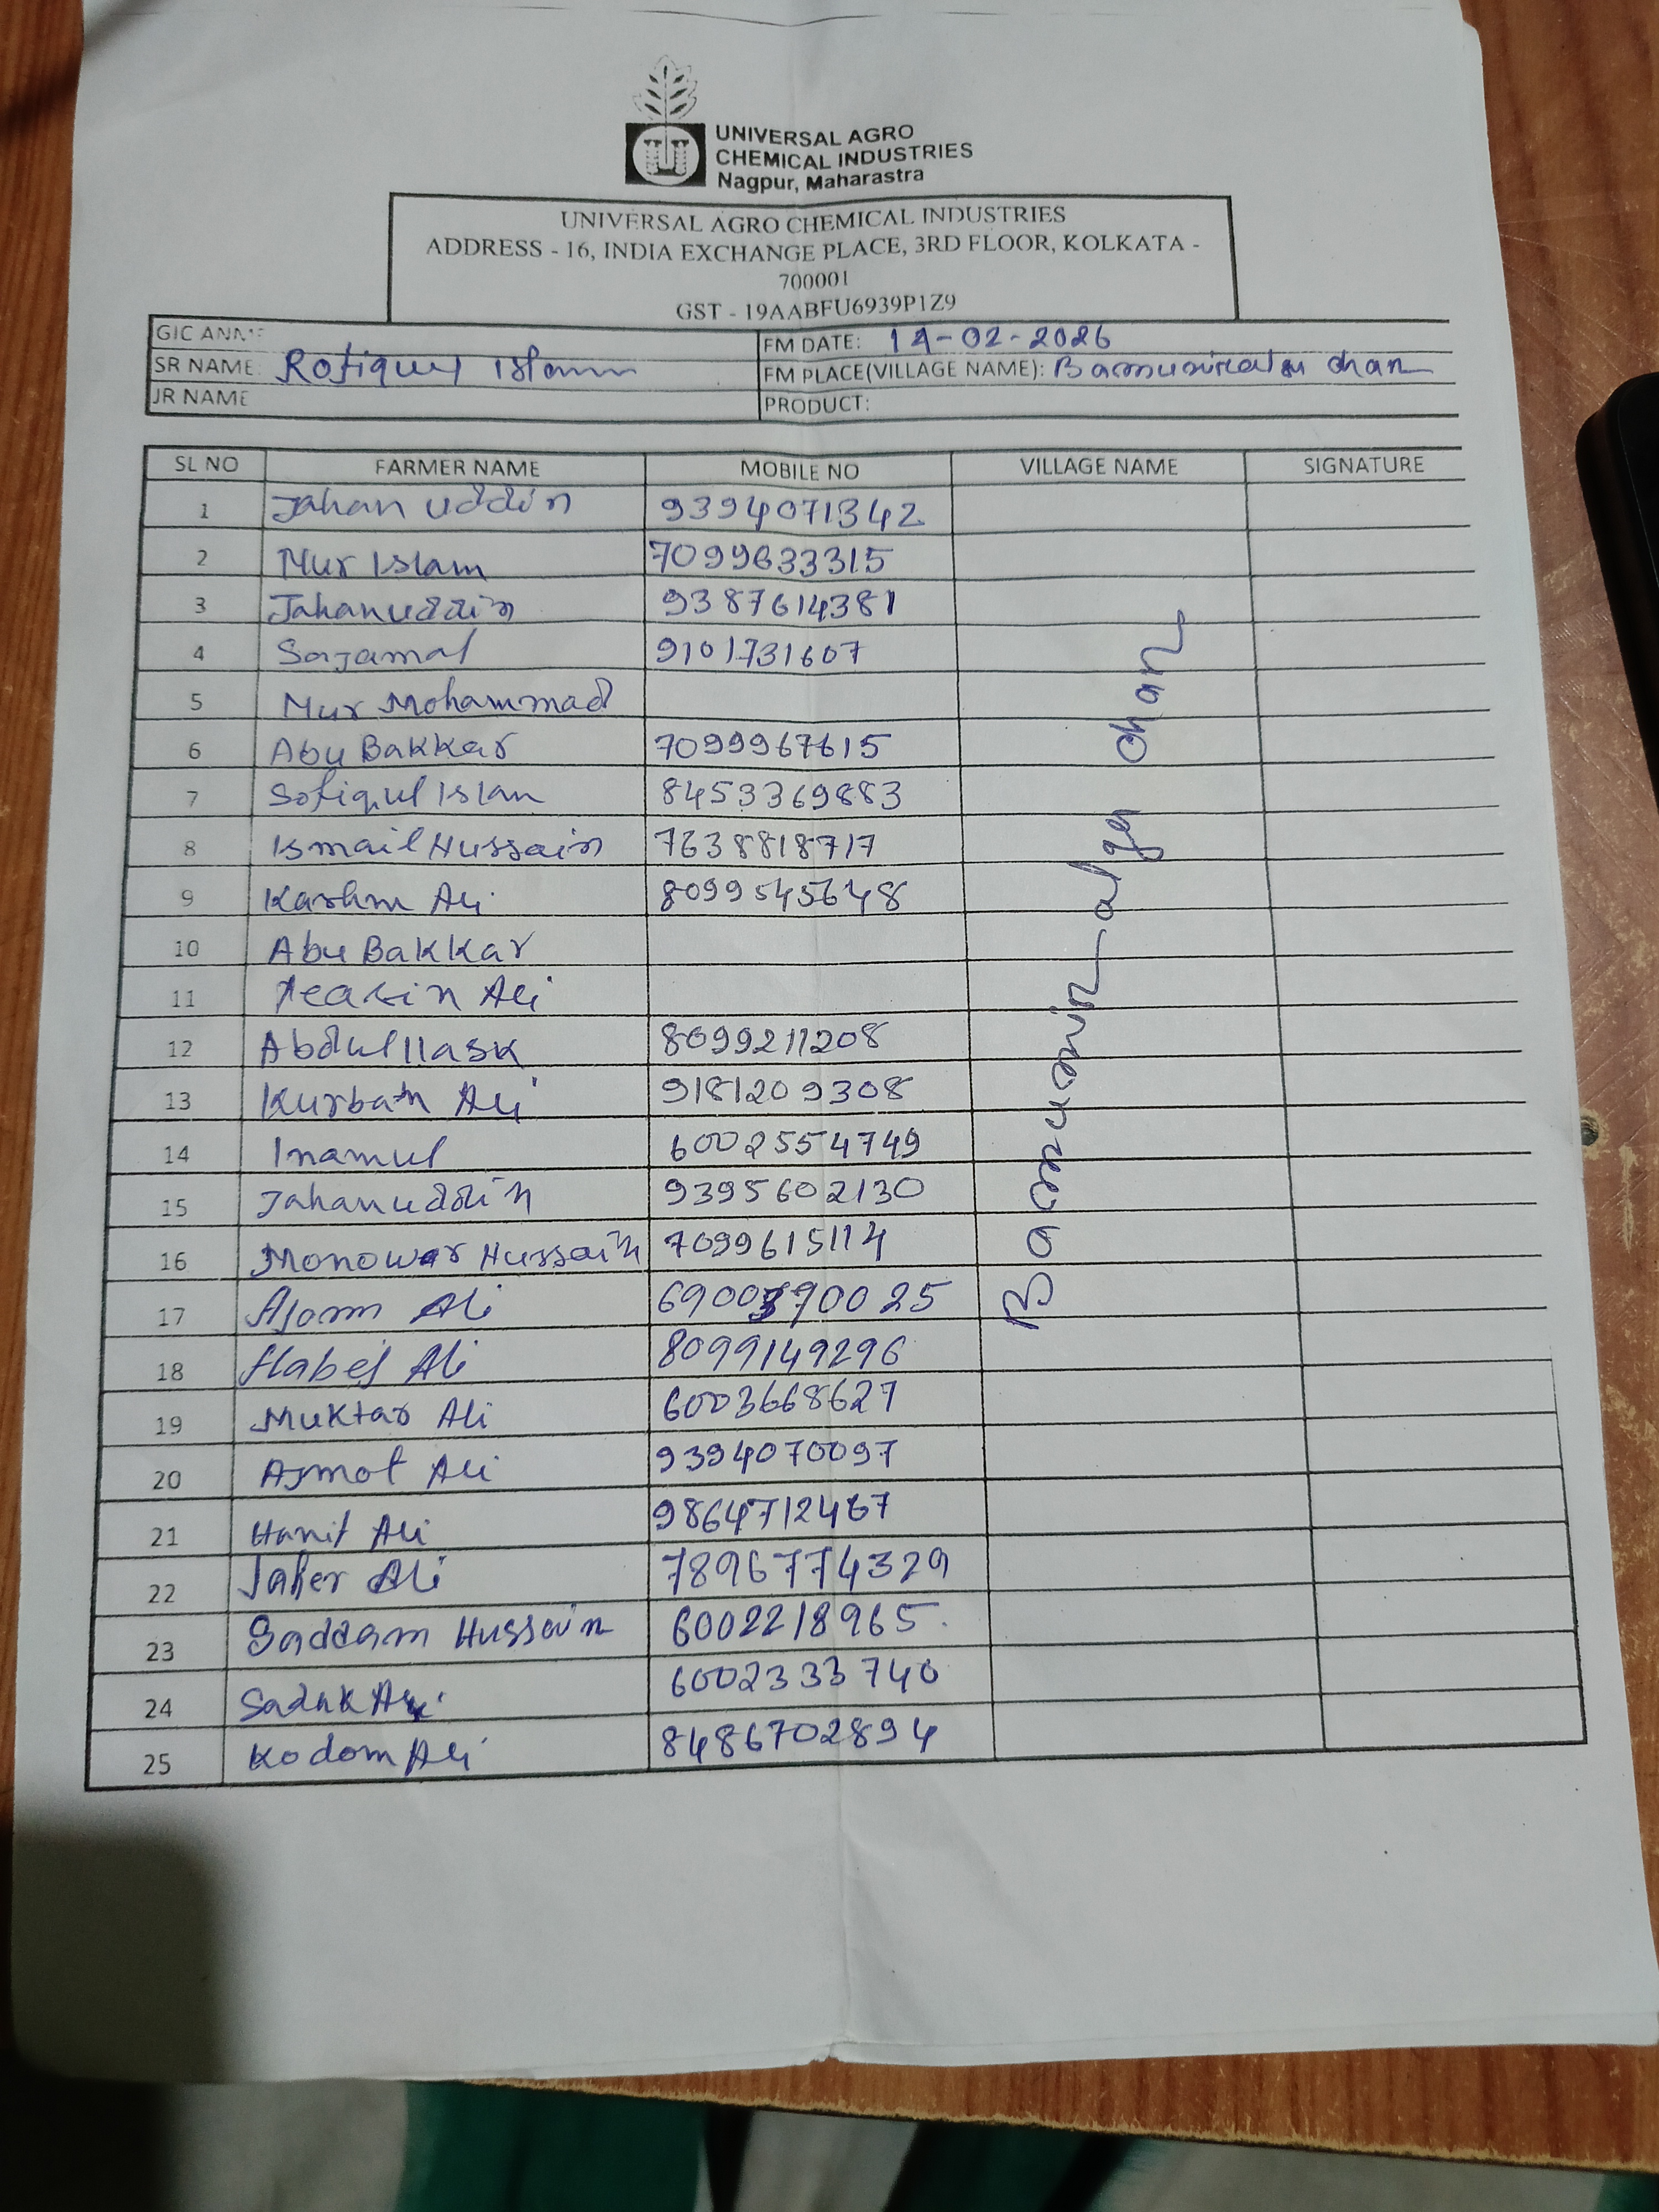 UNIVERSAL AGRO
CHEMICAL INDUSTRIES
Nagpur, Maharastra
UNIVERSAL AGRO CHEMICAL INDUSTRIES
ADDRESS - 16, INDIA EXCHANGE PLACE, 3RD FLOOR, KOLKATA -
700001
GST - 19AABFU6939P1Z9
GIC FM DATE: 14-02-2026
SR NAME: Rofiqul Islam FM PLACE(VILLAGE NAME):
JR NAME PRODUCT:
SL NO FARMER NAME MOBILE NO VILLAGE NAME SIGNATURE
1 Jahan uddin 9394071342
2 Nur Islam 7099633315
3 Jahanuddin 9387614381
4 Sajamal 9101731607
5 Nur Mohammad
6 Abu Bakkar 7099967615
7 Sofiqul Islam 8453369883
8 Ismail Hussain 7638818717
9 Ali 8099545648
10 Abu Bakkar
11 Ali
12 8099211208
13 Kurban Ali 9181209308
14 Inamul 6002554749
15 Jahanuddin 9395602130
16 Monowar Hussain 7099615114
17 Ali
18 Ali 8099149296
19 Muktar Ali 6003668627
20 Ajmot Ali 9394070097
21 Hanif Ali 9864712467
22 Jaher Ali 7896774329
23 Saddam Hussain 6002218965
24 6002333740
25 Kodom Ali 8486702894